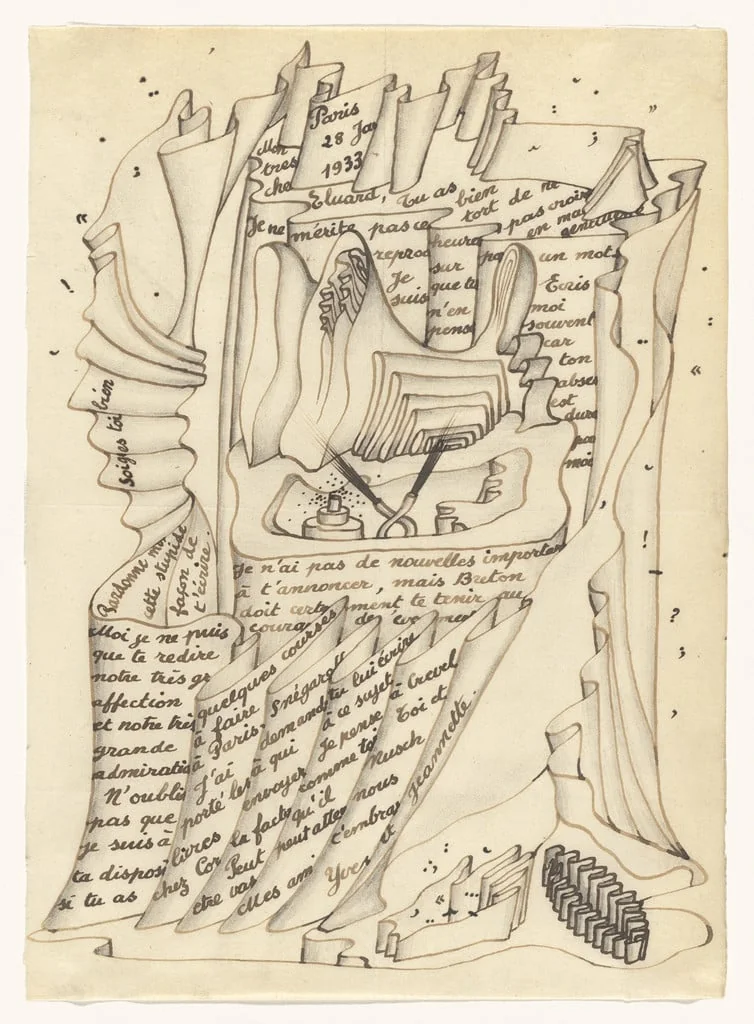 Paris
28 Ja
1933
Mon
très
che
Eluard, Tu as bien tort de ne pas croir
Je ne mérite pas ce pas en ma
reproc heure un mot
Je sur Ecris
suis que tu moi
n'en souvent
pens car
ton
absen
est
dure
po
moi
soignes toi bien
Pardonne moi
cette stupide
façon de
t'écrire.
Je n'ai pas de nouvelles importan
à t'annoncer, mais Breton
doit cert ment te tenir au
coura de
Moi je ne puis
que te redire
notre très gr
affection
et notre trè
grande
admiratio
N'oublie
pas que
je suis à
ta disposi
si tu as
quelques courses
à faire
à Paris.
J'ai
porté les
livres
chez Cor
Snégaroff
demand
à qui
envoyer
la factu
Peut
être vas
tu lui écrire
à ce sujet
Je pense à Crevel
comme toi
qu'il
peut aller
Mes ami
Toi et
Nusch
nous
t'embra
Yves et Jeannette.